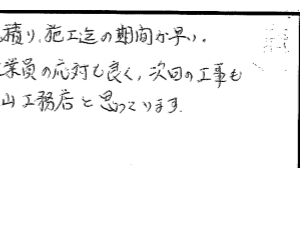 積り、施工迄の期間が早い。
業員の応対も良く、次回の工事も
山工務店と思っています。